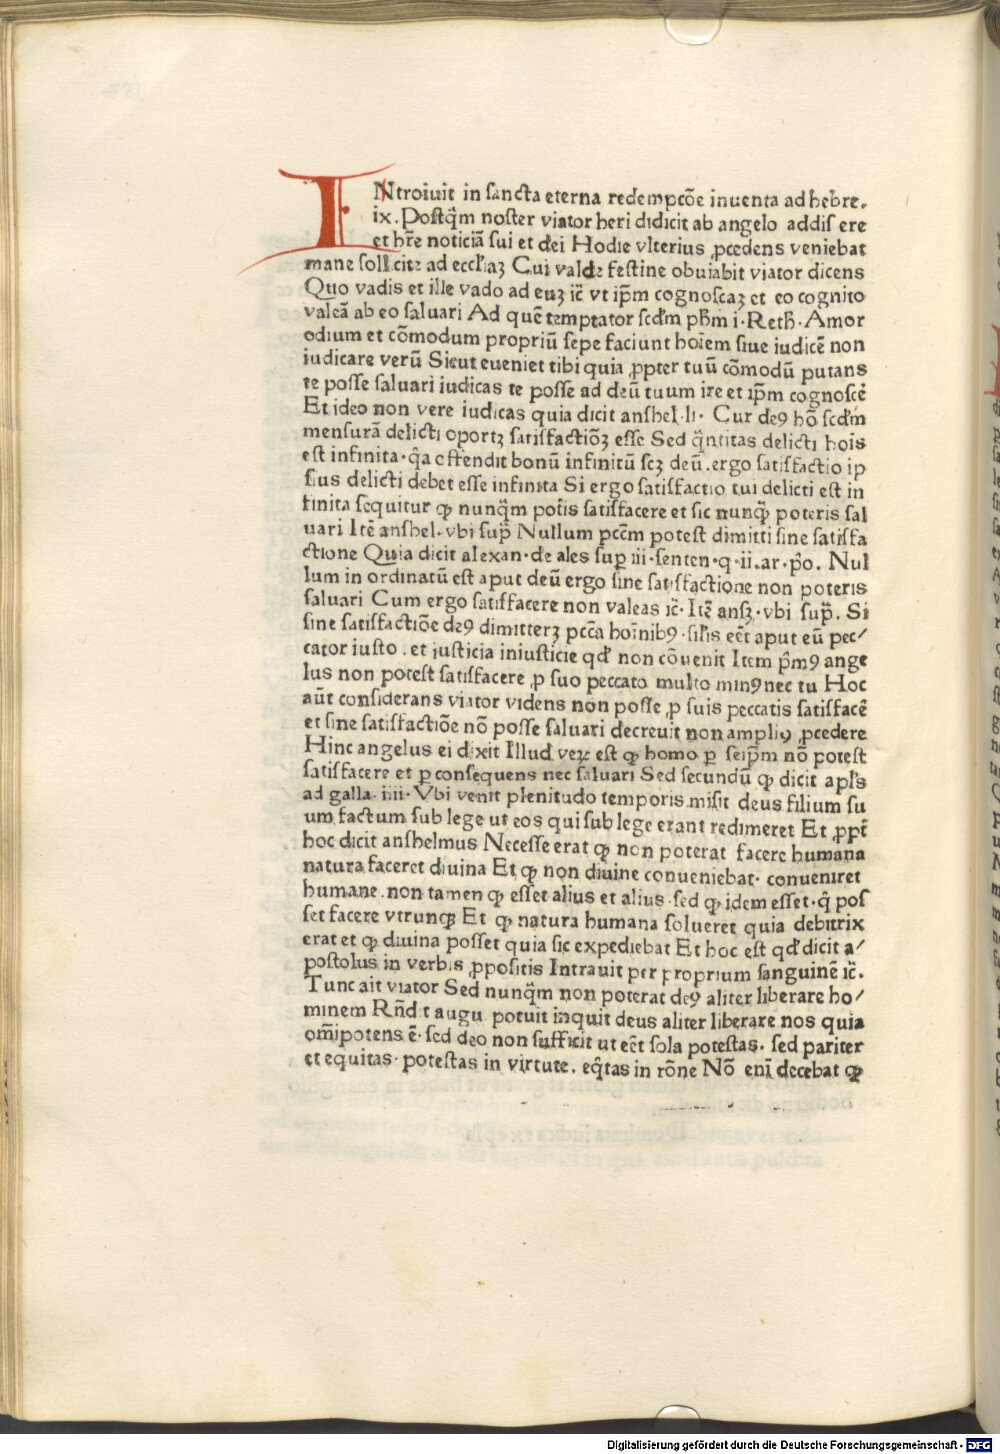 INtroiuit in sancta eterna redempcõe inuenta ad hebre.
ix. Postq̃m noster viator heri didicit ab angelo addis ere
et hr̃e noticiã sui et dei Hodie vlterius ꝓcedens veniebat
mane sollicite ad eccl̃iaꝫ Cui valde festine obuiabit viator dicens
Quo vadis et ille vado ad euꝫ ic̃ vt ip̃m cognoscaꝫ et eo cognito
valeã ab eo saluari Ad quẽ temptator scd̃m ph̃m i·Reth̃·Amor
odium et cõmodum propriũ sepe faciunt hoĩem siue iudicẽ non
iudicare verũ Sicut eueniet tibi quia ꝓpter tuũ cõmodũ putans
te posse saluari iudicas te posse ad deũ tuum ire et ip̃m cognoscẽ
Et ideo non vere iudicas quia dicit anshel·li· Cur deꝰ hõ scd̃m
mensurã delicti oportꝫ satisfactiõꝫ esse Sed q̃ntitas delicti hoĩs
est infinita·q̃a offendit bonũ infinitũ scꝫ deũ.ergo satisfactio ip
sius delicti debet esse infinita Si ergo satisfactio tui delicti est in
finita sequitur ꝙ nunq̃m pot̃is satisfacere et sic nunq̃ poteris sal
uari Itẽ anshel·vbi sup̃ Nullum pcc̃m potest dimitti sine satisfa
ctione Quia dicit alexan·de ales sup̃ iii·senten·q·ii.ar·p̃o. Nul
lum in ordinatũ est aput deũ ergo sine satisfactione non poteris
saluari Cum ergo satisfacere non valeas ic̃·Itẽ ansꝫ·vbi sup̃. Si
sine satisfactiõe deꝰ dimitterꝫ pcc̃a hoĩnibꝰ·sil̃is eẽt aput eũ pec⸗
cator iusto.et iusticia iniusticie qd̃ non cõuenit Item p̃mꝰ ange
lus non potest satisfacere ꝓ suo peccato multo minꝰ nec tu Hoc
aũt considerans viator videns non posse ꝓ suis peccatis satisfacẽ
et sine satisfactiõe nõ posse saluari decreuit non ampliꝰ ꝓcedere
Hinc angelus ei dixit Illud veꝝ est ꝙ homo ꝑ seip̃m nõ potest
satisfacere et ꝑ consequens nec saluari Sed secundũ ꝙ dicit apl̃s
ad galla·iiii·Vbi venit plenitudo temporis misit deus filium su
um factum sub lege ut eos qui sub lege erant redimeret Et ꝓpt̃
hoc dicit anshelmus Necesse erat ꝙ non poterat facere humana
natura faceret diuina Et ꝙ non diuine conueniebat·conueniret
humane.non tamen ꝙ esset alius et alius·sed ꝙ idem esset·q̃ pos
set facere vtrunqꝫ Et ꝙ natura humana solueret quia debitrix
erat et ꝙ diuina posset quia sic expediebat Et hoc est qd̃ dicit a⸗
postolus in verbis ꝓpositis Intrauit per proprium sanguinẽ ic̃.
Tunc ait viator Sed nunq̃m non poterat deꝰ aliter liberare ho⸗
minem Rñdit augu potuit inquit deus aliter liberare nos quia
om̃ipotens ẽ·sed deo non sufficit ut eẽt sola potestas·sed pariter
et equitas·potestas in virtute.eq̃tas in rõne Nõ enĩ decebat ꝙ
Digitalisierung gefördert durch die Deutsche Forschungsgemeinschaft - DFG